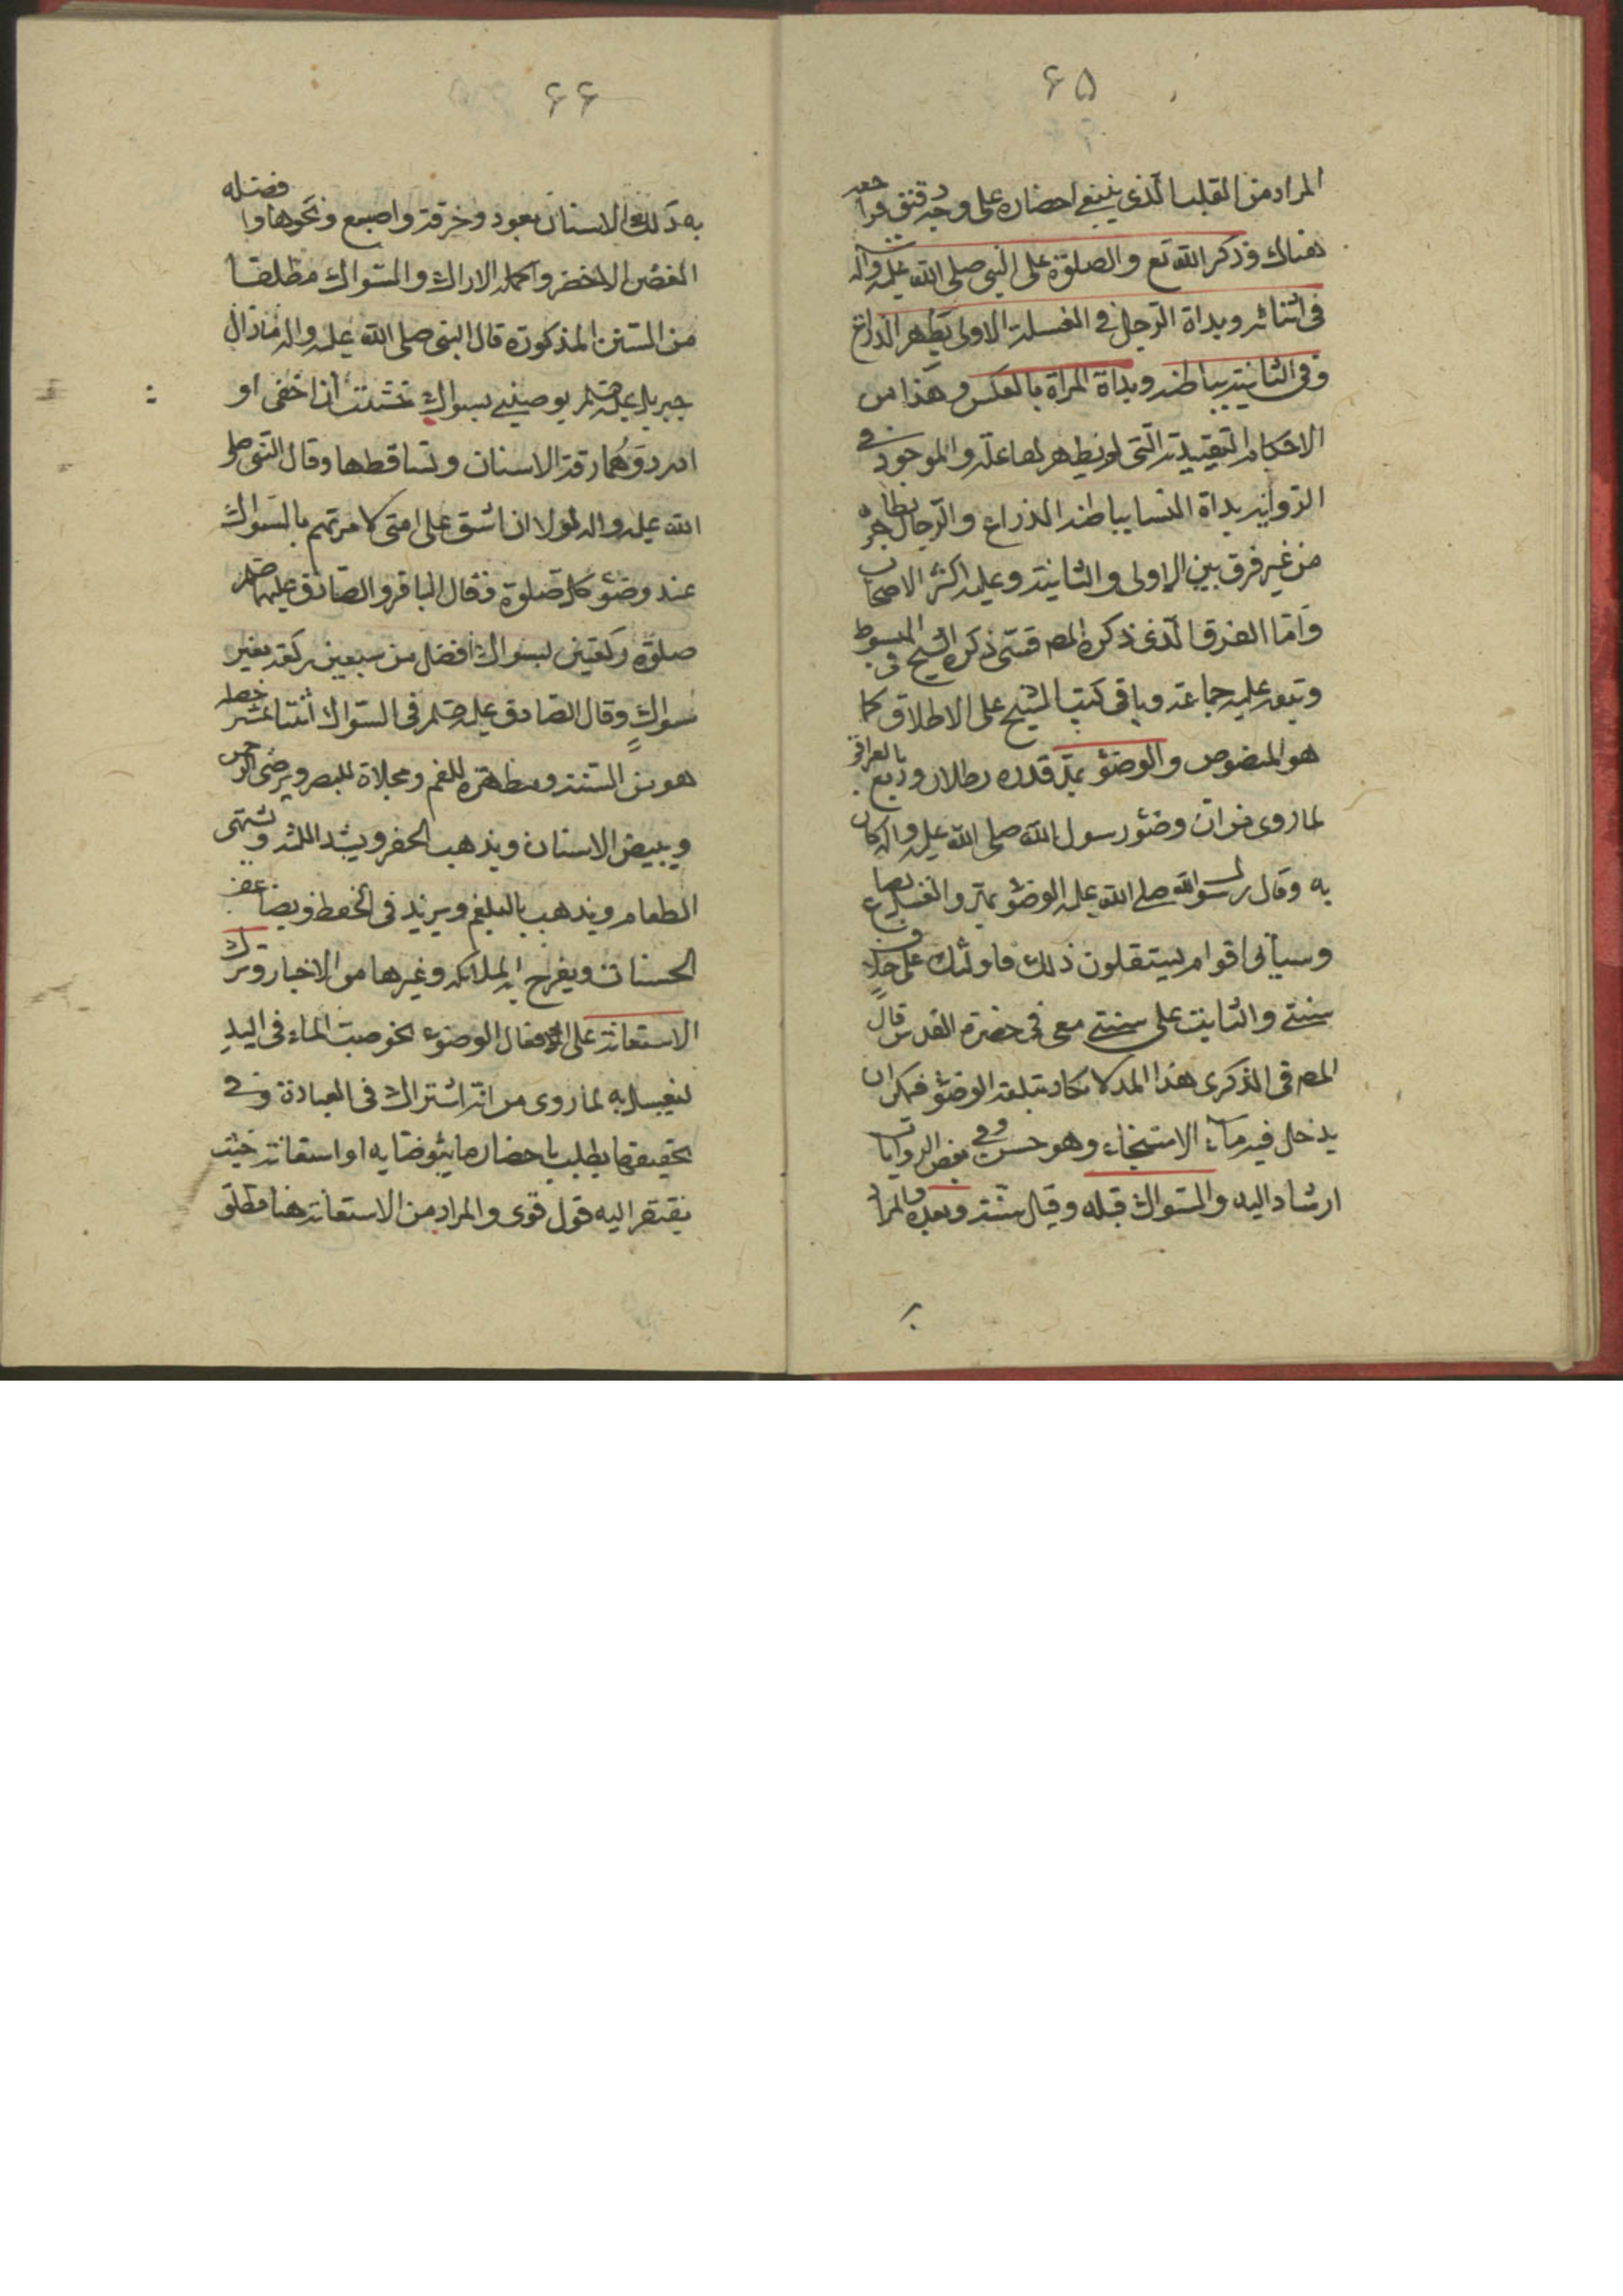 ۶۵
المراد من القلب الذی ینبغی احضاره علی وجه دقیق فراجعه
هناك وذكر الله تع والصلوة علی النبی صلی الله علیه وآله
فی اثنائه وبداة الرجل فی الغسلة الاولی بظهر الذراع
وفی الثانیة بباطنه وبداة المراة بالعكس وهذا من
الاحكام التعبدیة التی لم یظهر لها علة والموجود فی
الروایة بداة النسا بباطن الذراع والرجال بظاهره
من غیر فرق بین الاولی والثانیة وعلیه اكثر الاصحاب
واما الفرق الذی ذكره المص فشی ذكره الشیخ فی المبسوط
وتبعه علیه جماعة وباقی كتب الشیخ علی الاطلاق كما
هو المنصوص والوضؤ بمد قدره رطلان وربع بالعراقی
لما روی من ان وضؤ رسول الله صلی الله علیه واله كان
به وقال رسول الله صلی الله علیه الوضؤ بمد والغسل بصاع
وسیأتی اقوام یستقلون ذلك فاولئك علی خلاف
سنتی والثابت علی سنتی معی فی حضرة القدس قال
المص فی الذكری هذا المد لا یكاد یبلغه الوضؤ فیمكن ان
یدخل فیه ماء الاستنجاء وهو حسن وفی بعض الروایات
ارشاد الیه والسواك قبله وقیل سننه وبعده والمراد
۶۶
به دلك الاسنان بعود وخرقة واصبع ونحوها وافضله
الغصن الاخضر واكمله الاراك والسواك مطلقا
من السنن المذكورة قال النبی صلی الله علیه واله مازال
جبریل علیه السلم یوصینی بسواك خشیت ان احفی او
ادرد وهما رقة الاسنان وتساقطها وقال النبی صلی
الله علیه واله لولا ان اشق علی امتی لامرتهم بالسواك
عند وضؤ كل صلوة فقال الباقر والصادق علیهما
صلوة ركعتین بسواك افضل من سبعین ركعة بغیر
سواك وقال الصادق علیه السلم فی السواك اثنتا عشر خصله
هو من السنة ومطهرة للفم ومجلاة للبصر ویرضی الرحمن
ویبیض الاسنان ویذهب الحفر ویشد اللثة ویشتهی
الطعام ویذهب بالبلغم ویزید فی الحفظ ویضاعف
الحسنات ویفرح به الملائكه وغیرها من الاخبار وترك
الاستعانة علی افعال الوضوء بخو صبت الماء فی الید
لیغسل به لما روی من انه اشتراك فی العبادة وفی
تحقیقها بطلب باحضار مایتوضا به او استعانة حیث
یفتقر الیه قول قوی والمراد من الاستعانة هنا مطلق